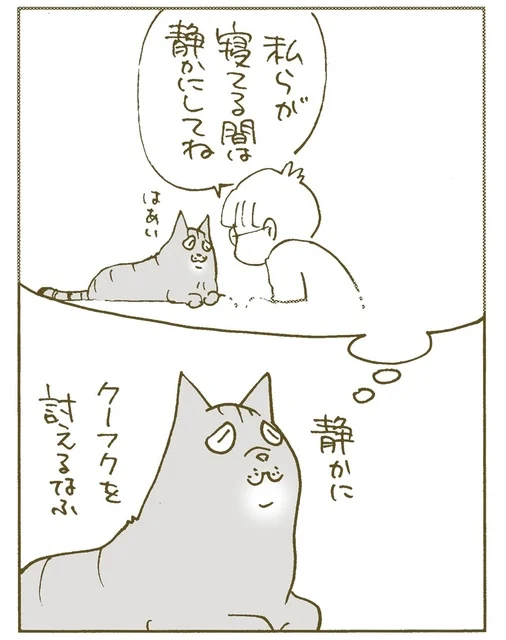 私らが
寝てる間は
静かにしてね
はあい
静かに
クーフクを
訴えるなふ